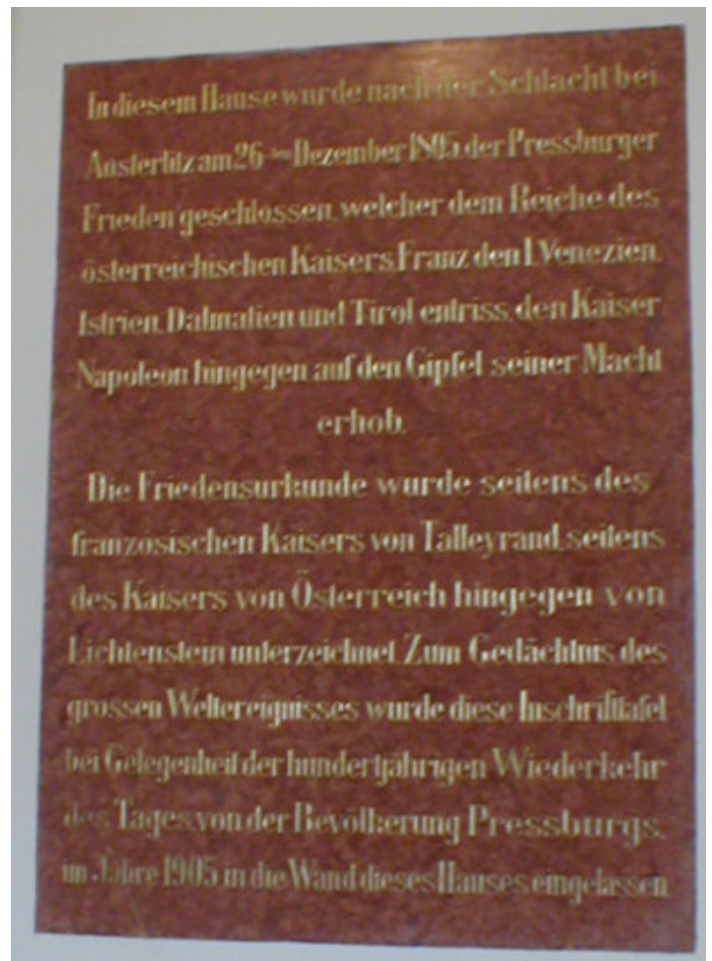 In diesem Hause wurde nach der Schlacht bei
Austerlitz am 26-ten Dezember 1805, der Pressburger
Frieden geschlossen, welcher dem Reiche des
österreichischen Kaisers, Franz den I. Venezien,
Istrien, Dalmatien und Tirol entriss, den Kaiser
Napoleon hingegen auf den Gipfel seiner Macht
erhob.
Die Friedensurkunde wurde seitens des
französischen Kaisers von Talleyrand, seitens
des Kaisers von Österreich hingegen von
Lichtenstein unterzeichnet. Zum Gedächtnis des
grossen Weltereignisses wurde diese Inschrifttafel
bei Gelegenheit der hundertjährigen Wiederkehr
des Tages, von der Bevölkerung Pressburgs,
im Jahre 1905 in die Wand dieses Hauses, eingelassen.